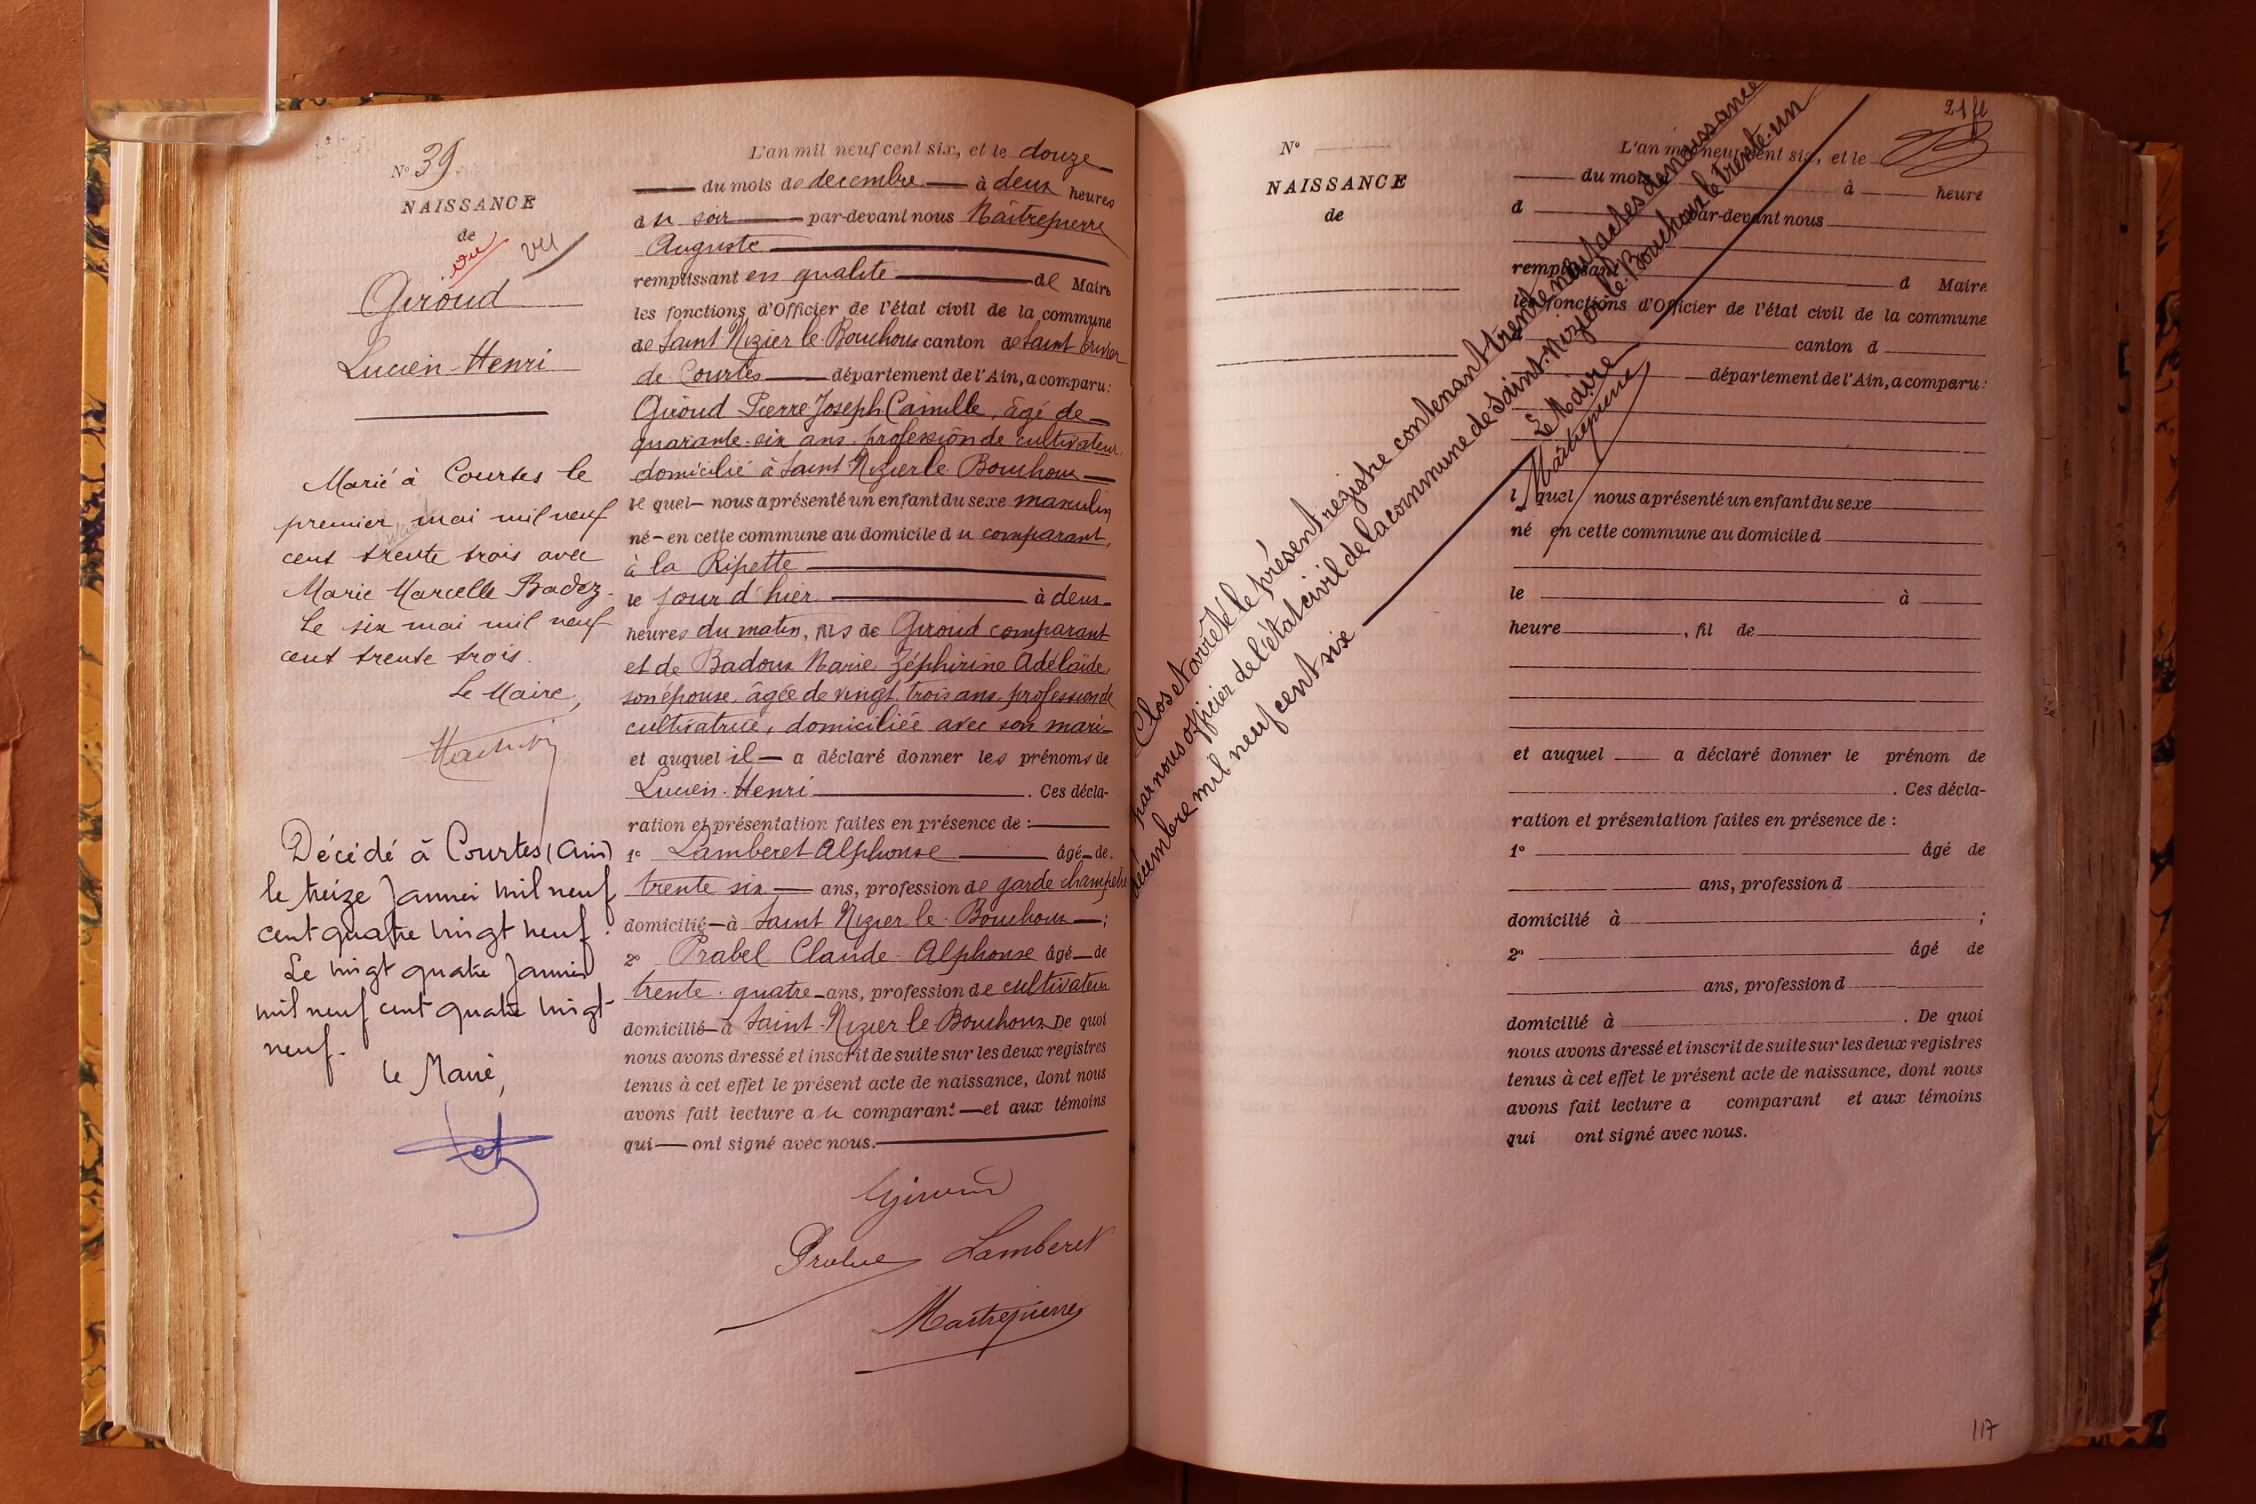 Nº 39
NAISSANCE
de
vu vu
Giroud
Lucien-Henri
Marié à Courtes le
premier mai mil neuf
cent trente trois avec
Marie Marcelle Badez.
Le six mai mil neuf
cent trente trois.
Le Maire,
Décédé à Courtes (Ain)
le treize Janvier mil neuf
cent quatre vingt neuf.
Le vingt quatre Janvier
mil neuf cent quatre vingt
neuf.
le Maire,
L'an mil neuf cent six, et le douze
du mois de decembre à deux heures
du soir par-devant nous Maîtrepierre
Auguste
remplissant en qualité de Maire
les fonctions d'Officier de l'état civil de la commune
de Saint Nizier le Bouchoux canton de Saint Trivier
de Courtes département de l'Ain, a comparu:
Giroud Pierre Joseph Camille, âgé de
quarante-six ans, profession de cultivateur,
domicilié à Saint Nizier le Bouchoux
lequel nous a présenté un enfant du sexe masculin
né en cette commune au domicile du comparant,
à la Ripette
le jour d'hier à deux
heures du matin, fils de Giroud comparant
et de Badoux Marie Zéphirine Adélaïde,
son épouse, âgée de vingt-trois ans, profession de
cultivatrice, domiciliée avec son mari
et auquel il a déclaré donner les prénoms de
Lucien-Henri. Ces décla-
ration et présentation faites en présence de :
1º Lamberet Alphonse âgé de
trente six ans, profession de garde champêtre
domicilié à Saint Nizier le Bouchoux ;
2º Prabel Claude Alphonse âgé de
trente-quatre ans, profession de cultivateur
domicilié à Saint-Nizier le Bouchoux De quoi
nous avons dressé et inscrit de suite sur les deux registres
tenus à cet effet le présent acte de naissance, dont nous
avons fait lecture au comparant et aux témoins
qui ont signé avec nous.
Giroud
Prabel Lamberet
Maitrepierre
21 fl
Nº
NAISSANCE
de
L'an mil neuf cent six, et le
du mois à heure
d par-devant nous
remplissant d Maire
les fonctions d'Officier de l'état civil de la commune
canton d
département de l'Ain, a comparu:
l quel nous a présenté un enfant du sexe
né en cette commune au domicile d
le à
heure , fil de
et auquel a déclaré donner le prénom de
. Ces décla-
ration et présentation faites en présence de :
1º âgé de
ans, profession d
domicilié à ;
2º âgé de
ans, profession d
domicilié à . De quoi
nous avons dressé et inscrit de suite sur les deux registres
tenus à cet effet le présent acte de naissance, dont nous
avons fait lecture a comparant et aux témoins
qui ont signé avec nous.
Clos et arrêté le présent registre contenant trente neuf actes de naissance
par nous officier de l'état civil de la commune de Saint-Nizier-le-Bouchoux le trente-un
décembre mil neuf cent six
Le Maire
Maitrepierre
117